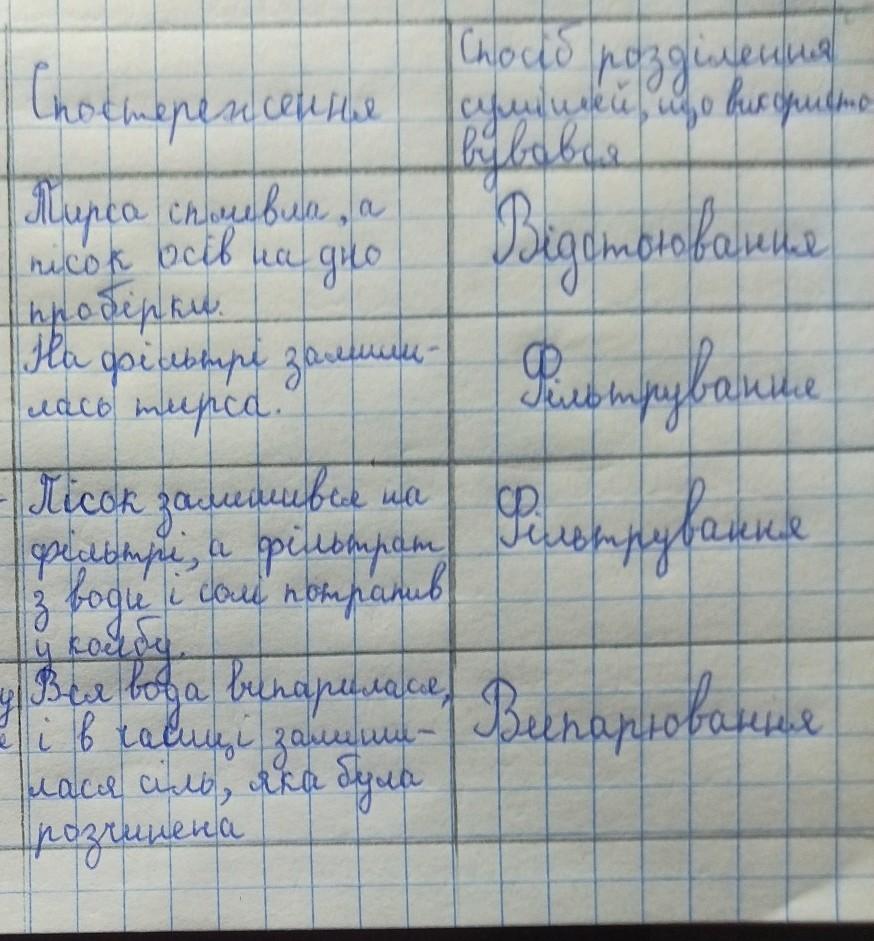 Спостереження
Спосіб розділення
сумішей, що використо
вувався
Тирса спливла, а
пісок осів на дно
пробірки.
Відстоювання
На фільтрі залиши-
лась тирса.
Фільтрування
Пісок залишився на
фільтрі, а фільтрат
з води і солі потрапив
у колбу.
Фільтрування
Вся вода випарилася,
і в чашці залиши-
лася сіль, яка була
розчинена
Випарювання